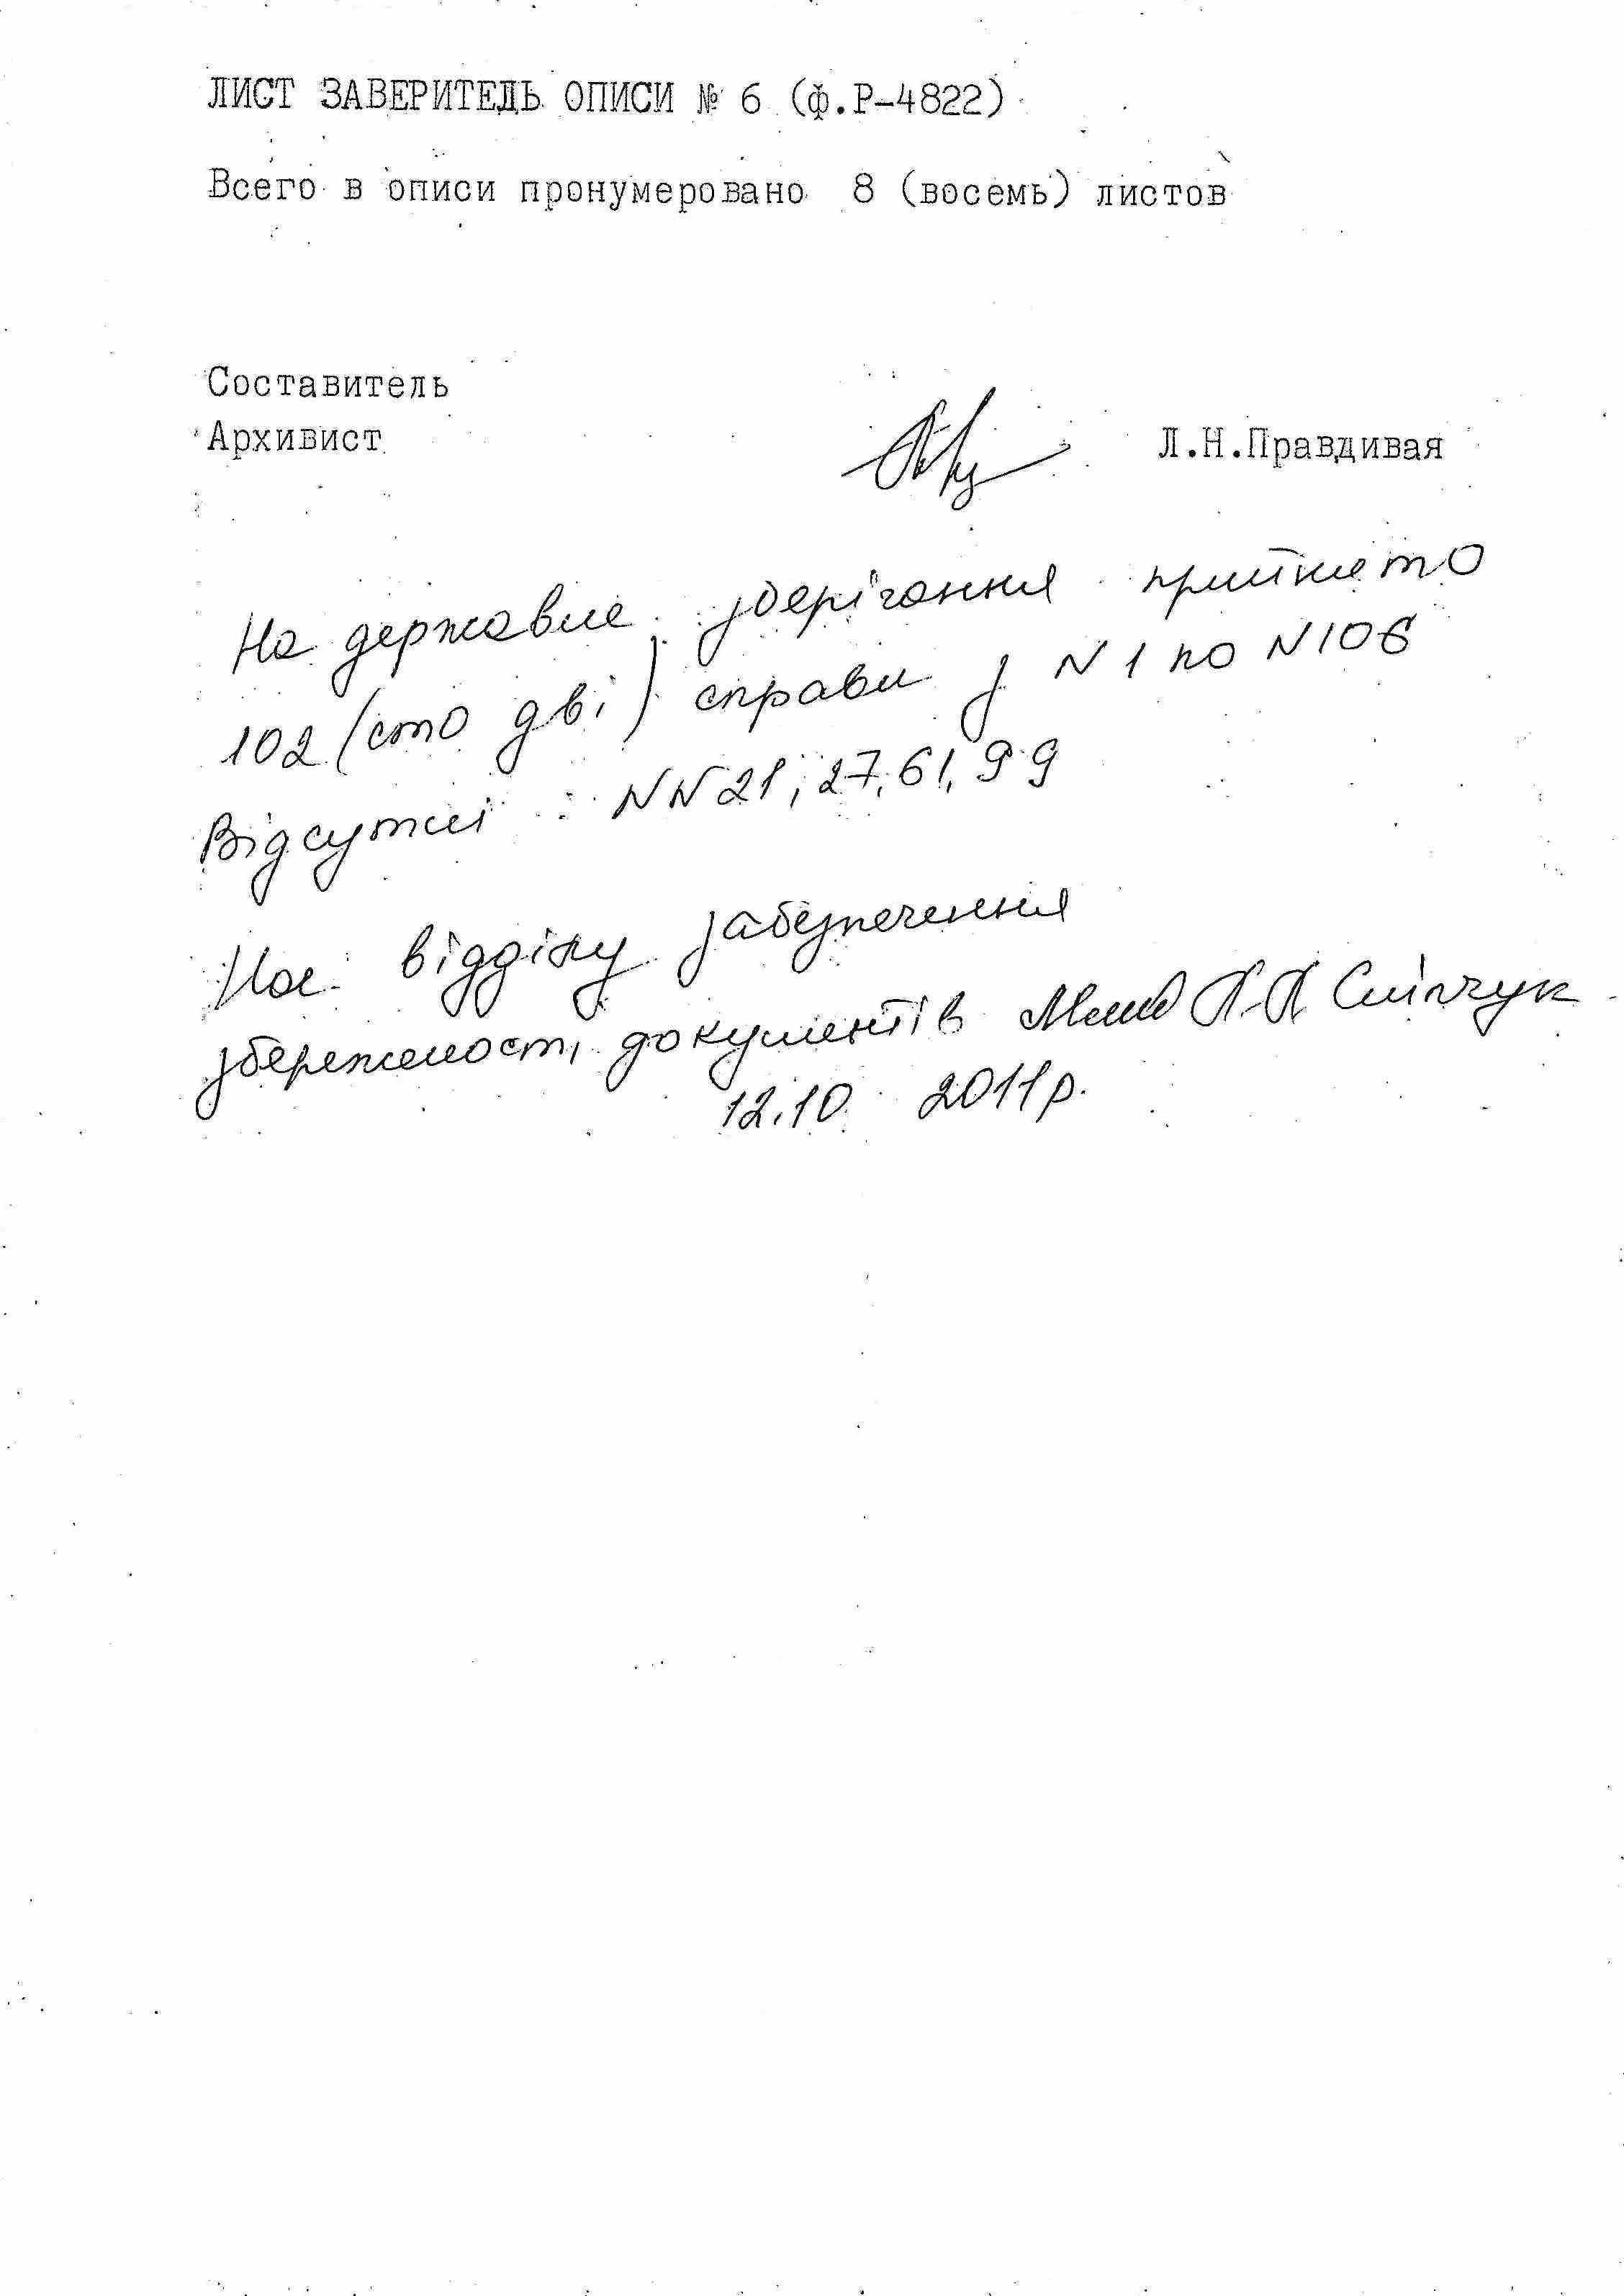 ЛИСТ ЗАВЕРИТЕЛЬ ОПИСИ № 6 (ф.Р-4822)
Всего в описи пронумеровано 8 (восемь) листов
Составитель
Архивист
Л.Н.Правдивая
На державне зберігання прийнято
102 (сто дві) справи з N 1 по N 106
Відсутні : NN 21, 27, 61, 99
Нач. відділу забезпечення
збереженості документів
12.10. 2011р.